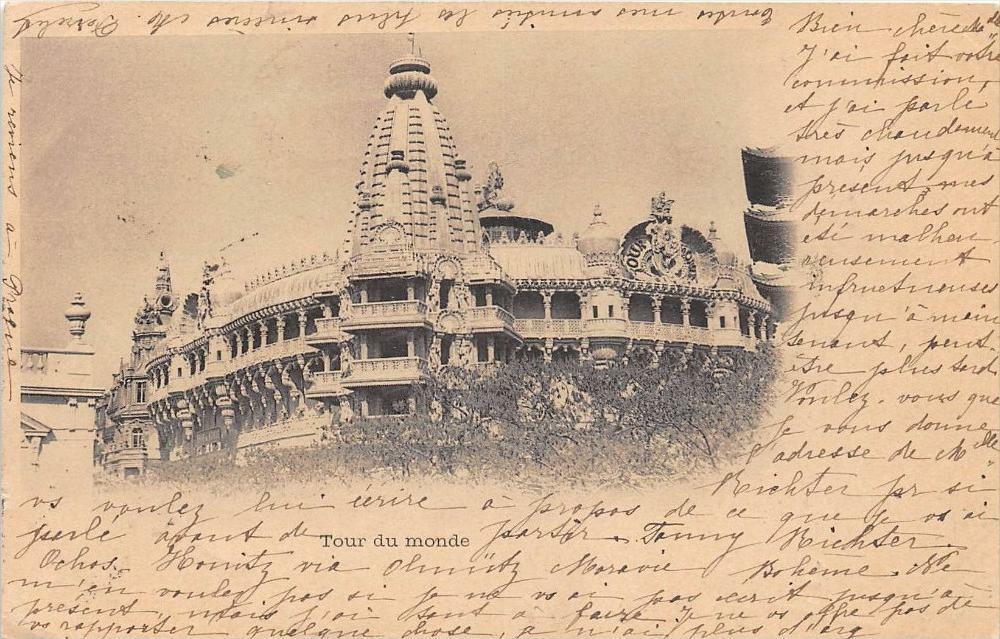 Bien chère Melle
J'ai fait votre
commission,
et j'ai parlé
très chaudement
mais jusqu'à
présent, mes
démarches ont
été malheu
reusement
infructueuses
jusqu'à main
tenant, peut
être plus tard
Voulez-vous que
Je vous donne
l'adresse de Melle
Richter pr si
vs voulez lui écrire à propos de ce que je vs ai
parlé avant de partir. Fanny Richter.
Tour du monde
via Olmütz Moravie Bohème. Ne
m'en voulez pas si je ne vs ai pas écrit jusqu'à
présent, mais j'ai tant à faire
vs rapporter quelque chose, je n'ai plus
Je reviens à Prague
TOUR